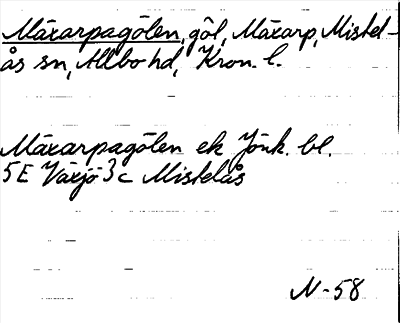 Mäxarpagölen, göl, Mäxarp, Mistel-
ås sn, Allbo hd, Kron. l.
Mäxarpagölen ek Jönk. bl.
5E Växjö 3c Mistelås
N-58